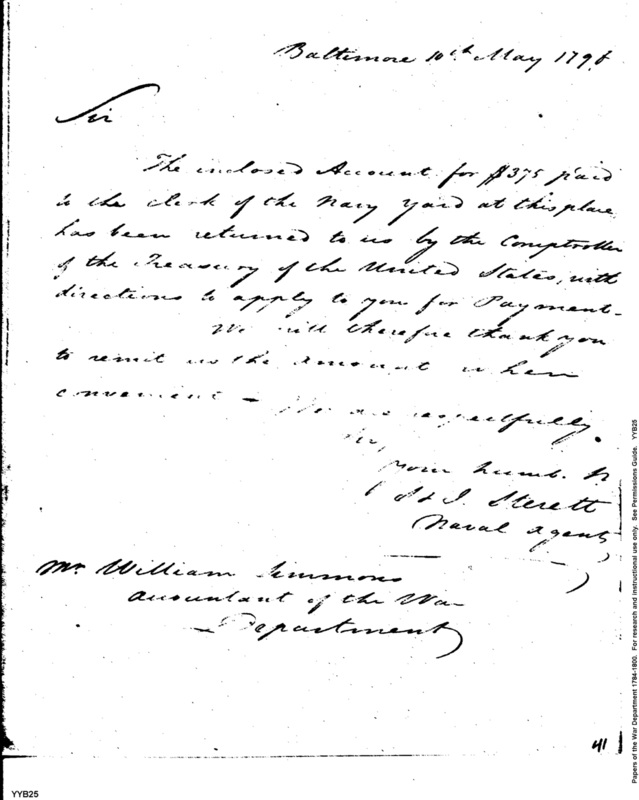 Baltimore 10th May 1798
Sir
The inclosed Account for $375 paid
to the clerk of the Navy Yard at this place
has been returned to us by the Comptroller
of the Treasury of the United States, with
directions to apply to you for Payment-
We will therefore thank you
to remit us the amount when
convenient - We are respectfully.
Sir,
your humb. 
S & J. Sterett
Naval Agents
Mr. William Simmons
Accountant of the War
Department
41
YYB25
Papers of the War Department 1784-1800. For research and instructional use only. See Permissions Guide. YYB25